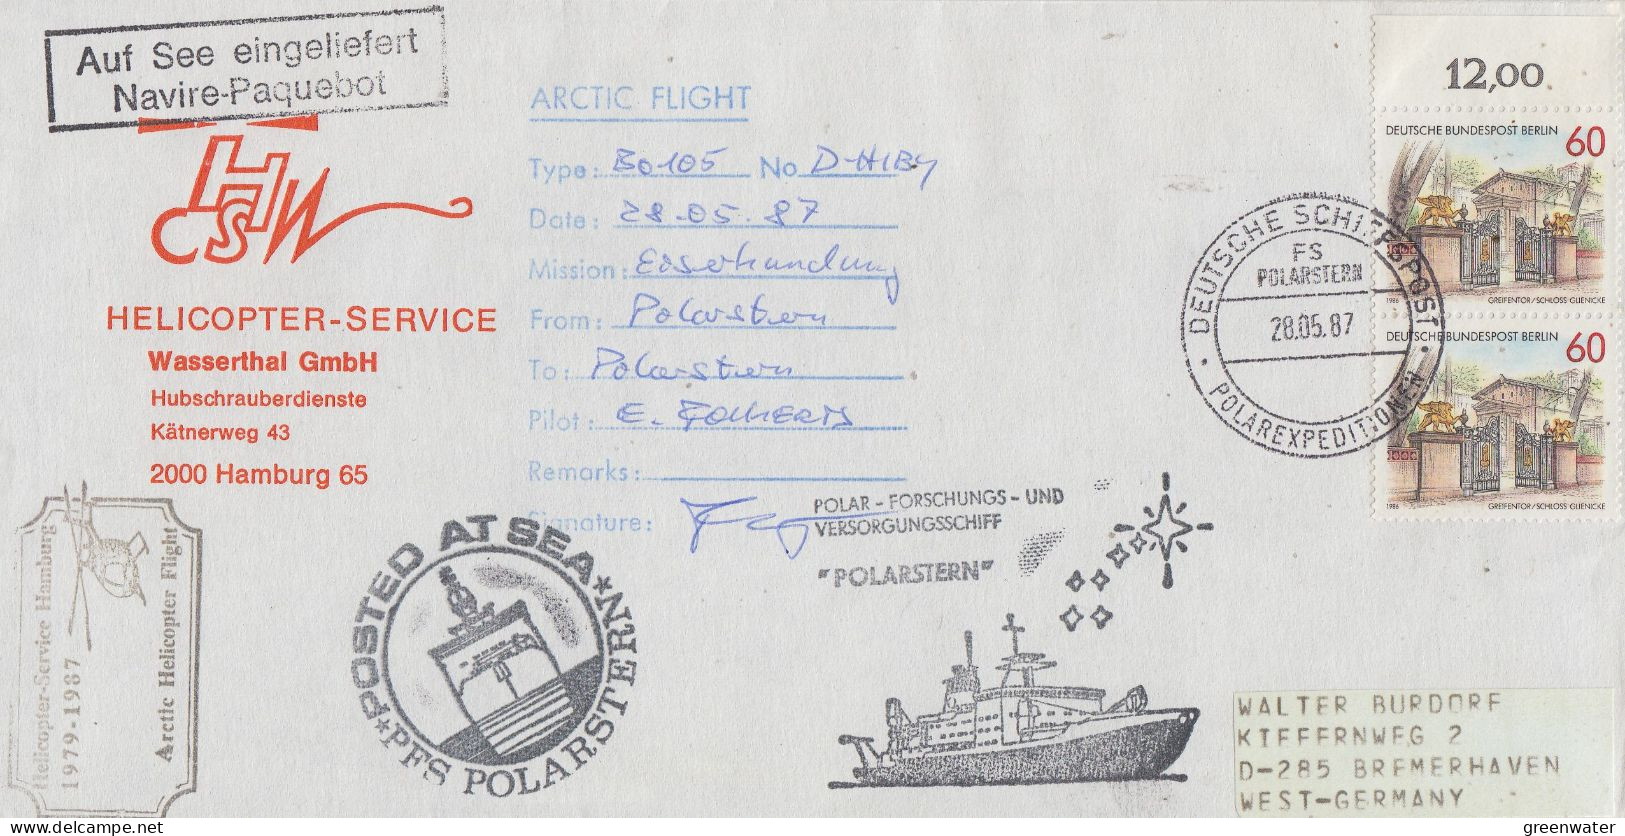 Auf See eingeliefert
Navire-Paquebot
HSW
HELICOPTER-SERVICE
Wasserthal GmbH
Hubschrauberdienste
Kätnerweg 43
2000 Hamburg 65
ARCTIC FLIGHT
Type: BO-105 No D-HIBY
Date: 28.05.87
Mission: Eiserkundung
From: Polarstern
To: Polarstern
Pilot: E.
Remarks:
Signature:
12,00
DEUTSCHE BUNDESPOST BERLIN
60
1986 GREIFENTOR/SCHLOSS GLIENICKE
DEUTSCHE BUNDESPOST BERLIN
60
1986 GREIFENTOR/SCHLOSS GLIENICKE
DEUTSCHE SCHIFFSPOST
FS
POLARSTERN
28.05.87
POLAREXPEDITIONEN
Helicopter-Service Hamburg
1979-1987
Arctic Helicopter Flight
POSTED AT SEA
PFS POLARSTERN
POLAR-FORSCHUNGS-UND
VERSORGUNGSSCHIFF
"POLARSTERN"
WALTER BURDORF
KIEFERNWEG 2
D-285 BREMERHAVEN
WEST-GERMANY
delcampe.net
greenwater